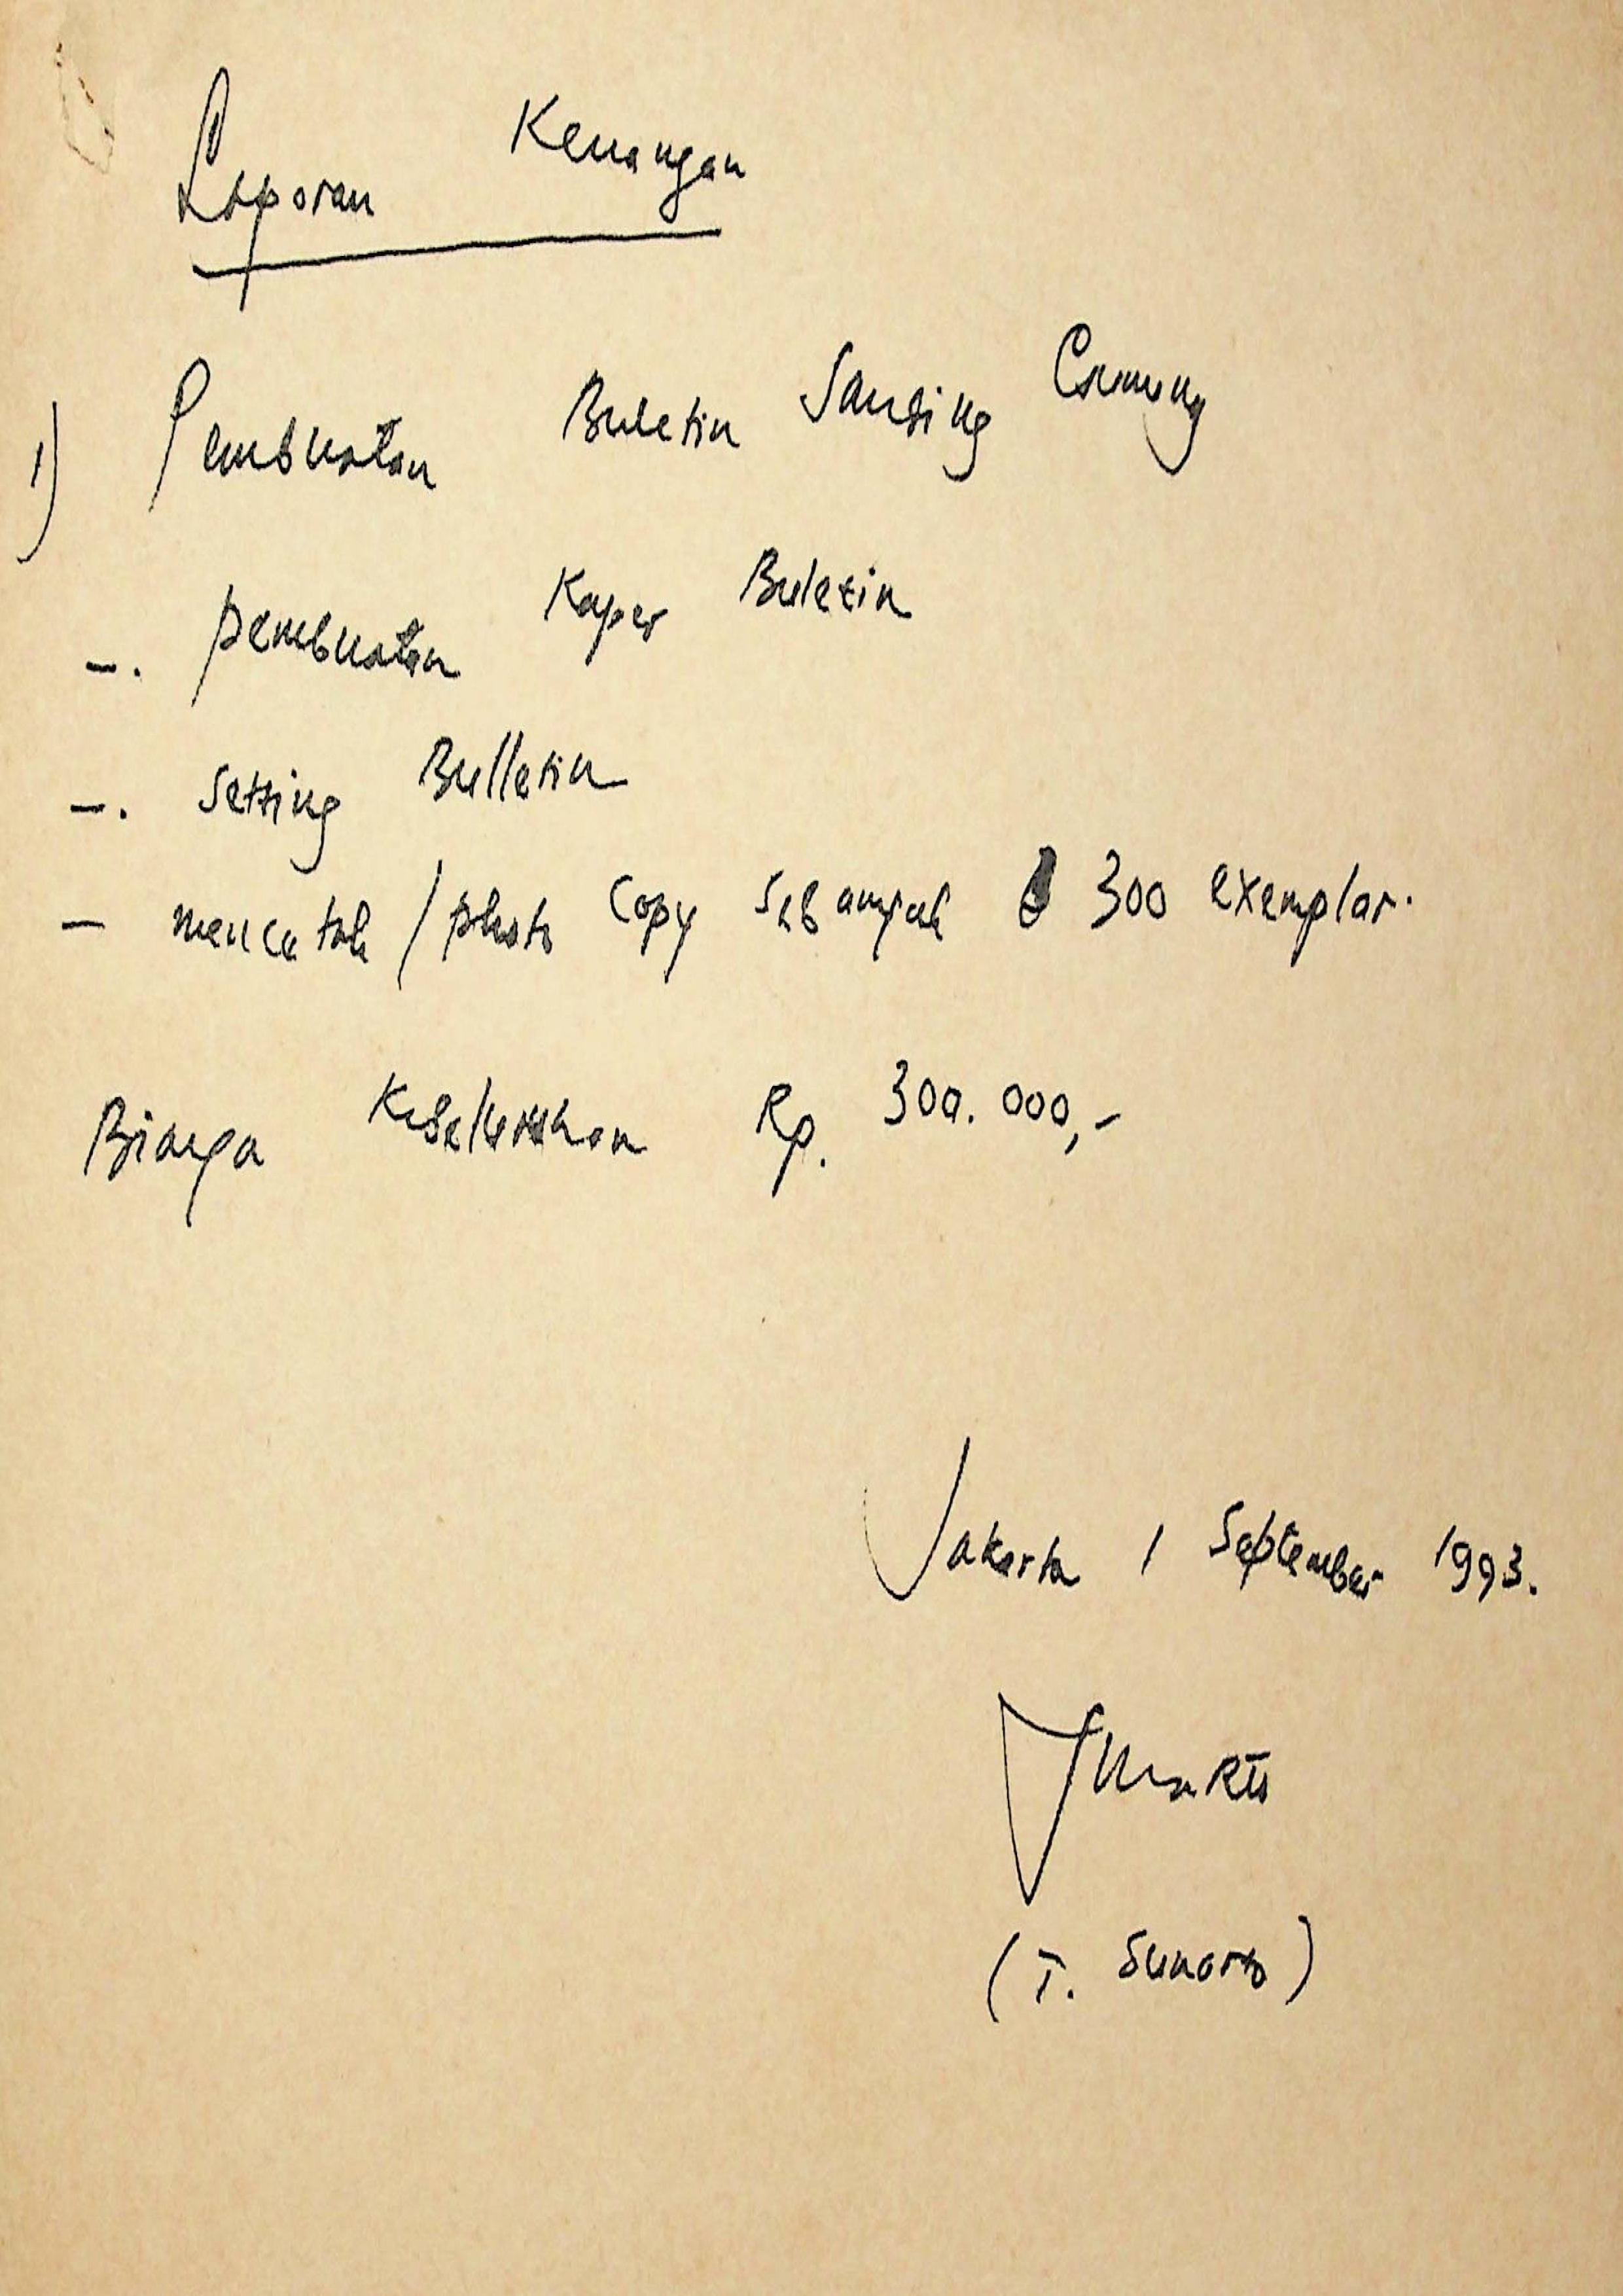 Laporan Keuangan
1) Pembuatan Buletin
-. pembuatan Kaper Buletin
-. Setting Bulletin
- mencetak / photo Copy sebanyak 300 exemplar.
Biaya Keseluruhan Rp. 300.000,-
Jakarta 1 September 1993.
(T. Sunarto)